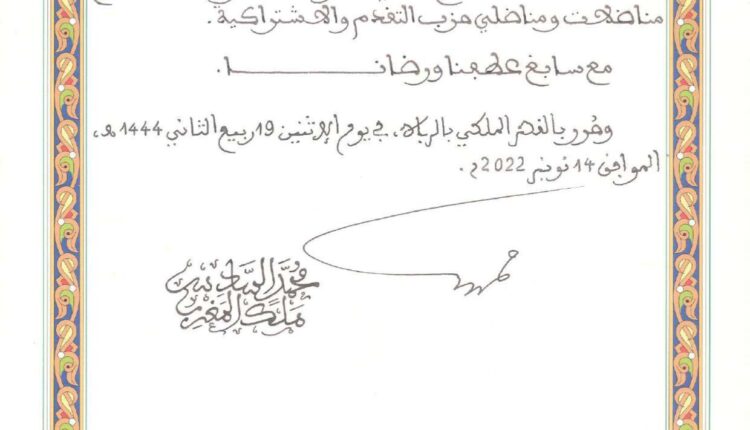 مناضلات ومناضلي حزب التقدم والاشتراكية.
مع سابغ عطفنا ورضانا.
وحرر بالقصر الملكي بالرباط، في يوم الاثنين 19 ربيع الثاني 1444هـ،
الموافق 14 نونبر 2022م.
محمد السادس
ملك المغرب